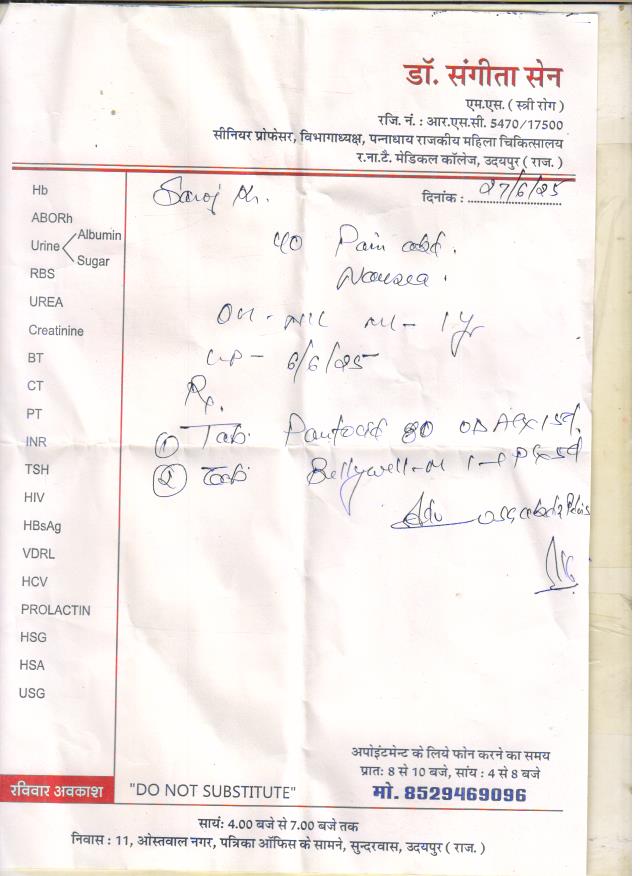 डॉ. संगीता सेन
एम.एस. ( स्त्री रोग )
रजि. नं. : आर.एस.सी. 5470/17500
सीनियर प्रोफेसर, विभागाध्यक्ष, पन्नाधाय राजकीय महिला चिकित्सालय
र.ना.टै. मेडिकल कॉलेज, उदयपुर ( राज. )
दिनांक : 27/6/25
Saroj Kr.
Hb
ABORh
Urine Albumin
Sugar
RBS
UREA
Creatinine
BT
CT
PT
INR
TSH
HIV
HBsAg
VDRL
HCV
PROLACTIN
HSG
HSA
USG
Pain abd.
Nausea.
6/6/25
Rx.
① Tab. 
② Tab Bellywell-M
Adv
रविवार अवकाश
"DO NOT SUBSTITUTE"
अपोइंटमेन्ट के लिये फोन करने का समय
प्रातः 8 से 10 बजे, सांय : 4 से 8 बजे
मो. 8529469096
सायं: 4.00 बजे से 7.00 बजे तक
निवास : 11, ओस्तवाल नगर, पत्रिका ऑफिस के सामने, सुन्दरवास, उदयपुर ( राज. )